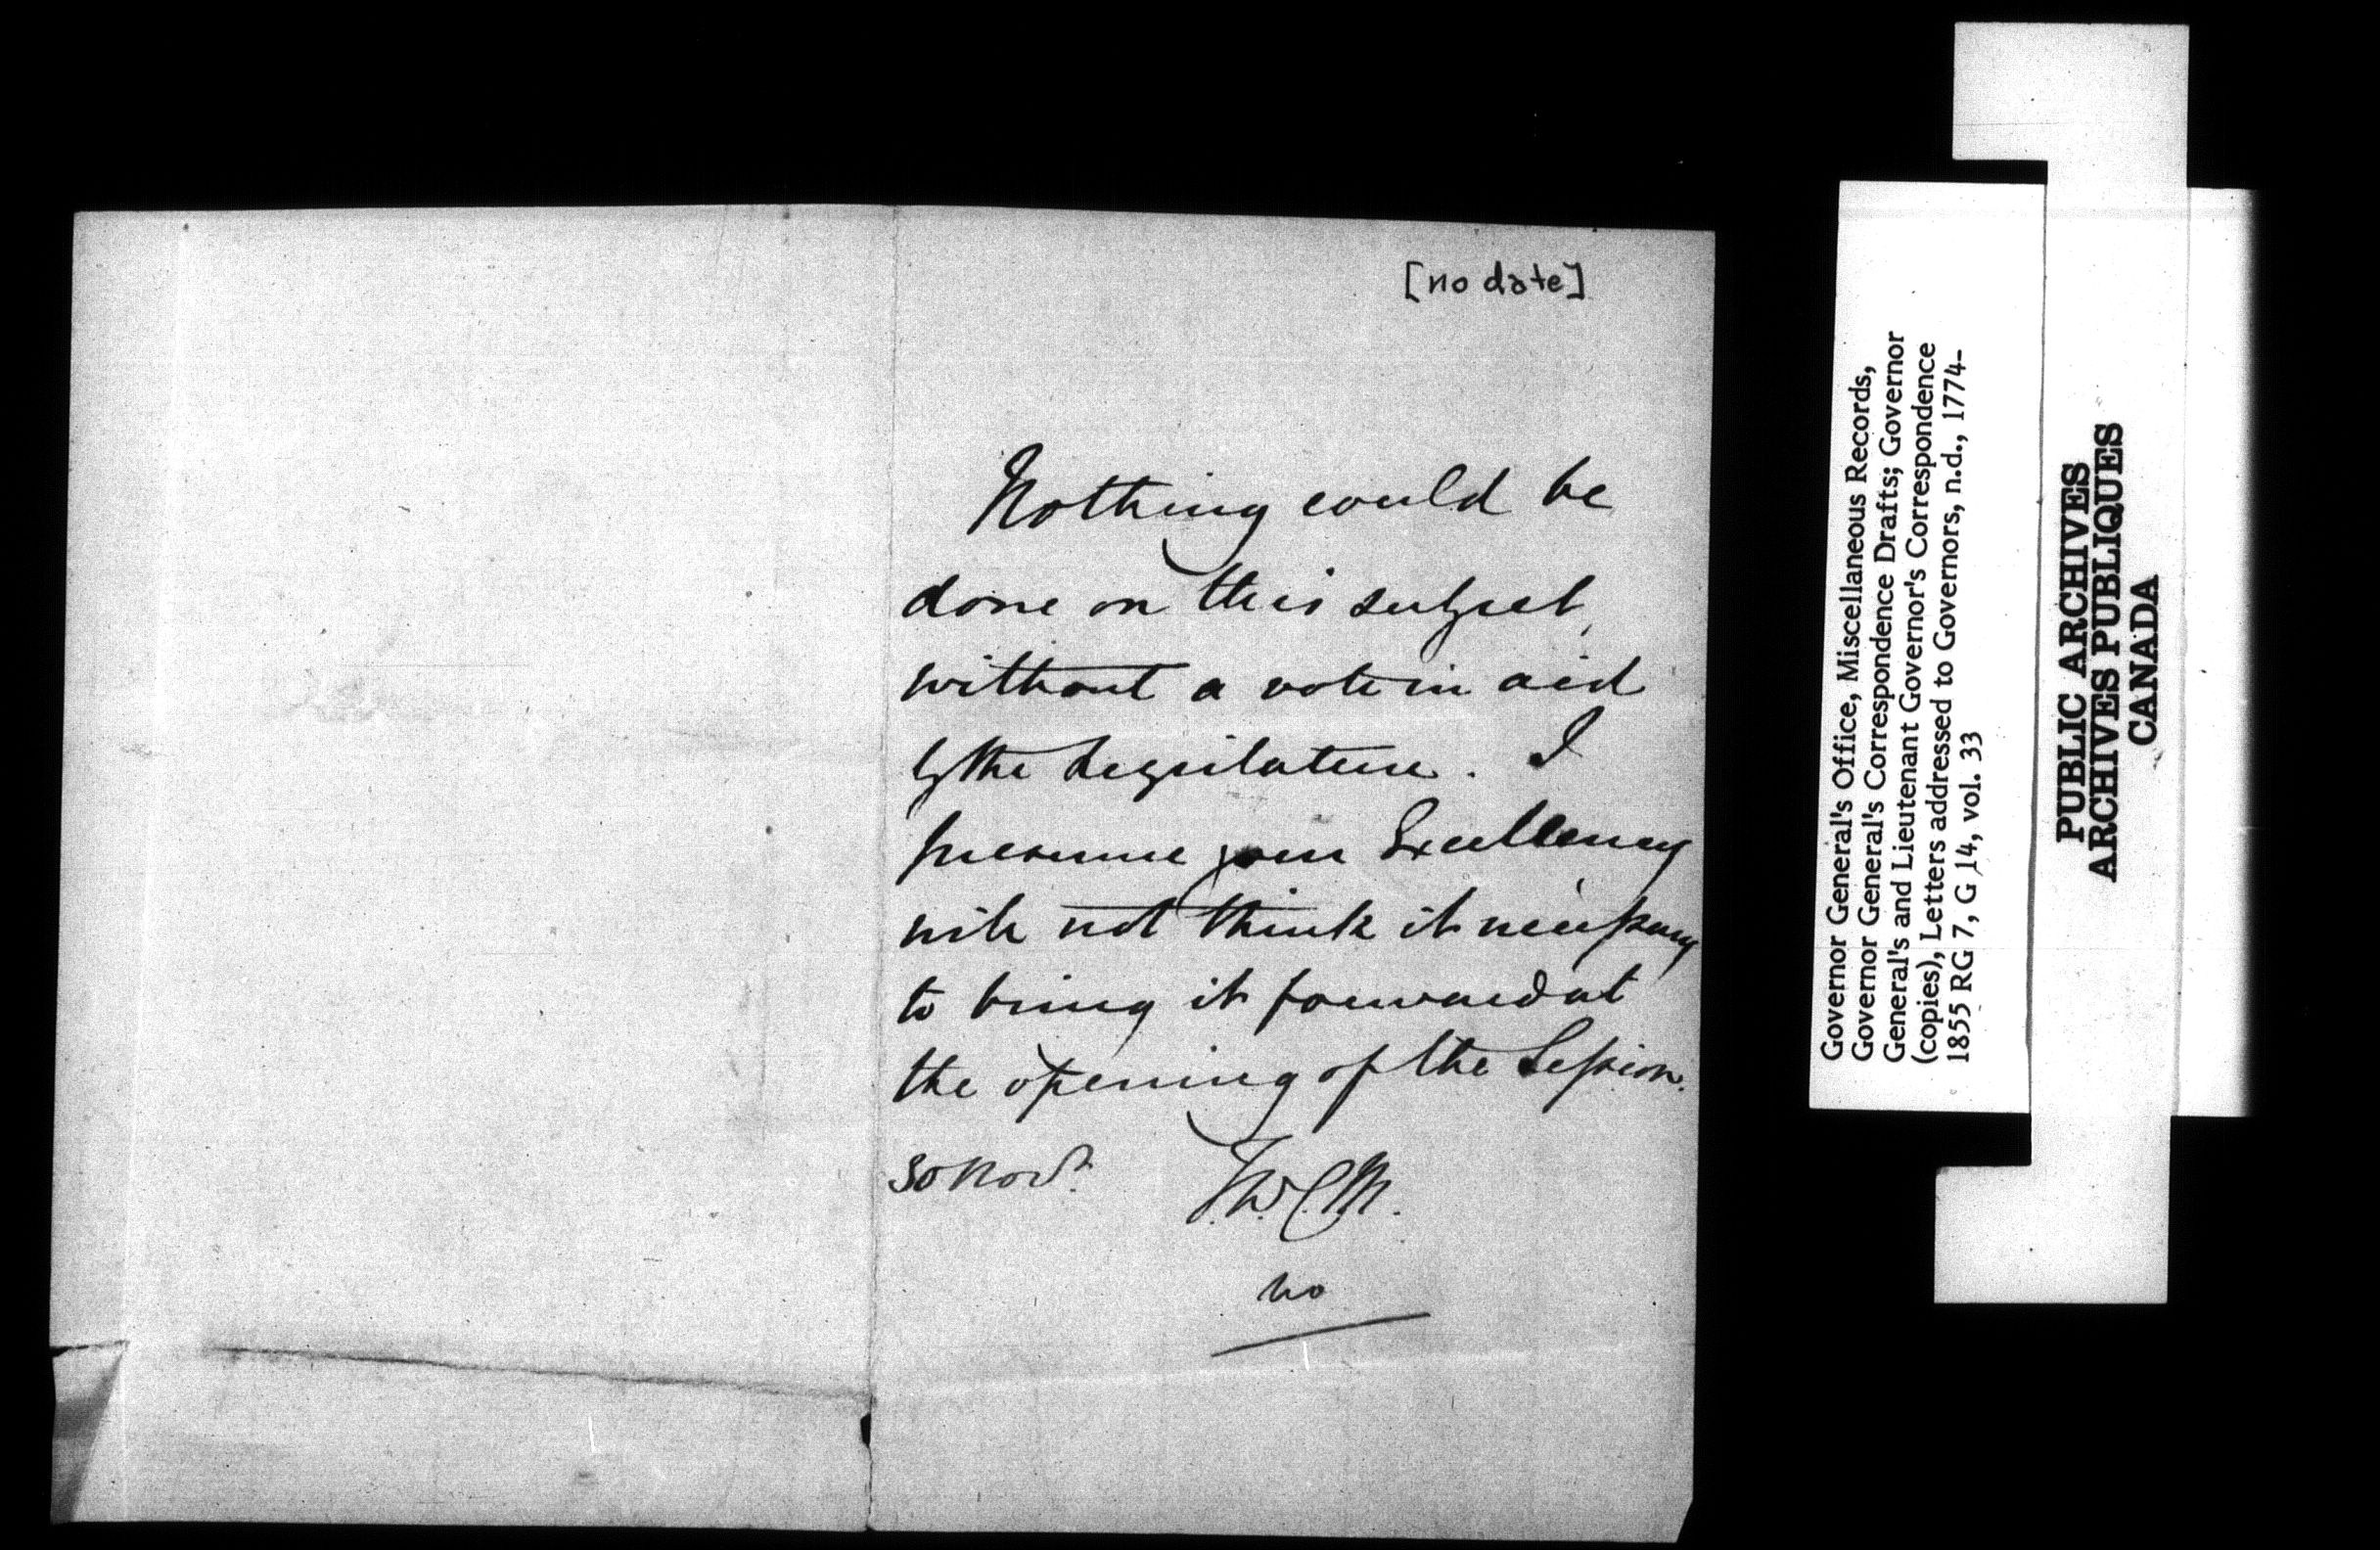 [no date]
Nothing could be
done on this subject
without a vote in aid
by the Legislature. I
presume your Excellency
will not think it necessary
to bring it forward at
the opening of the Session.
30 Novr.
T.W.C.M.
No
Governor General's Office, Miscellaneous Records,
Governor General's Correspondence Drafts; Governor
General's and Lieutenant Governor's Correspondence
(copies), Letters addressed to Governors, n.d., 1774-
1855 RG 7, G 14, vol. 33
PUBLIC ARCHIVES
ARCHIVES PUBLIQUES
CANADA